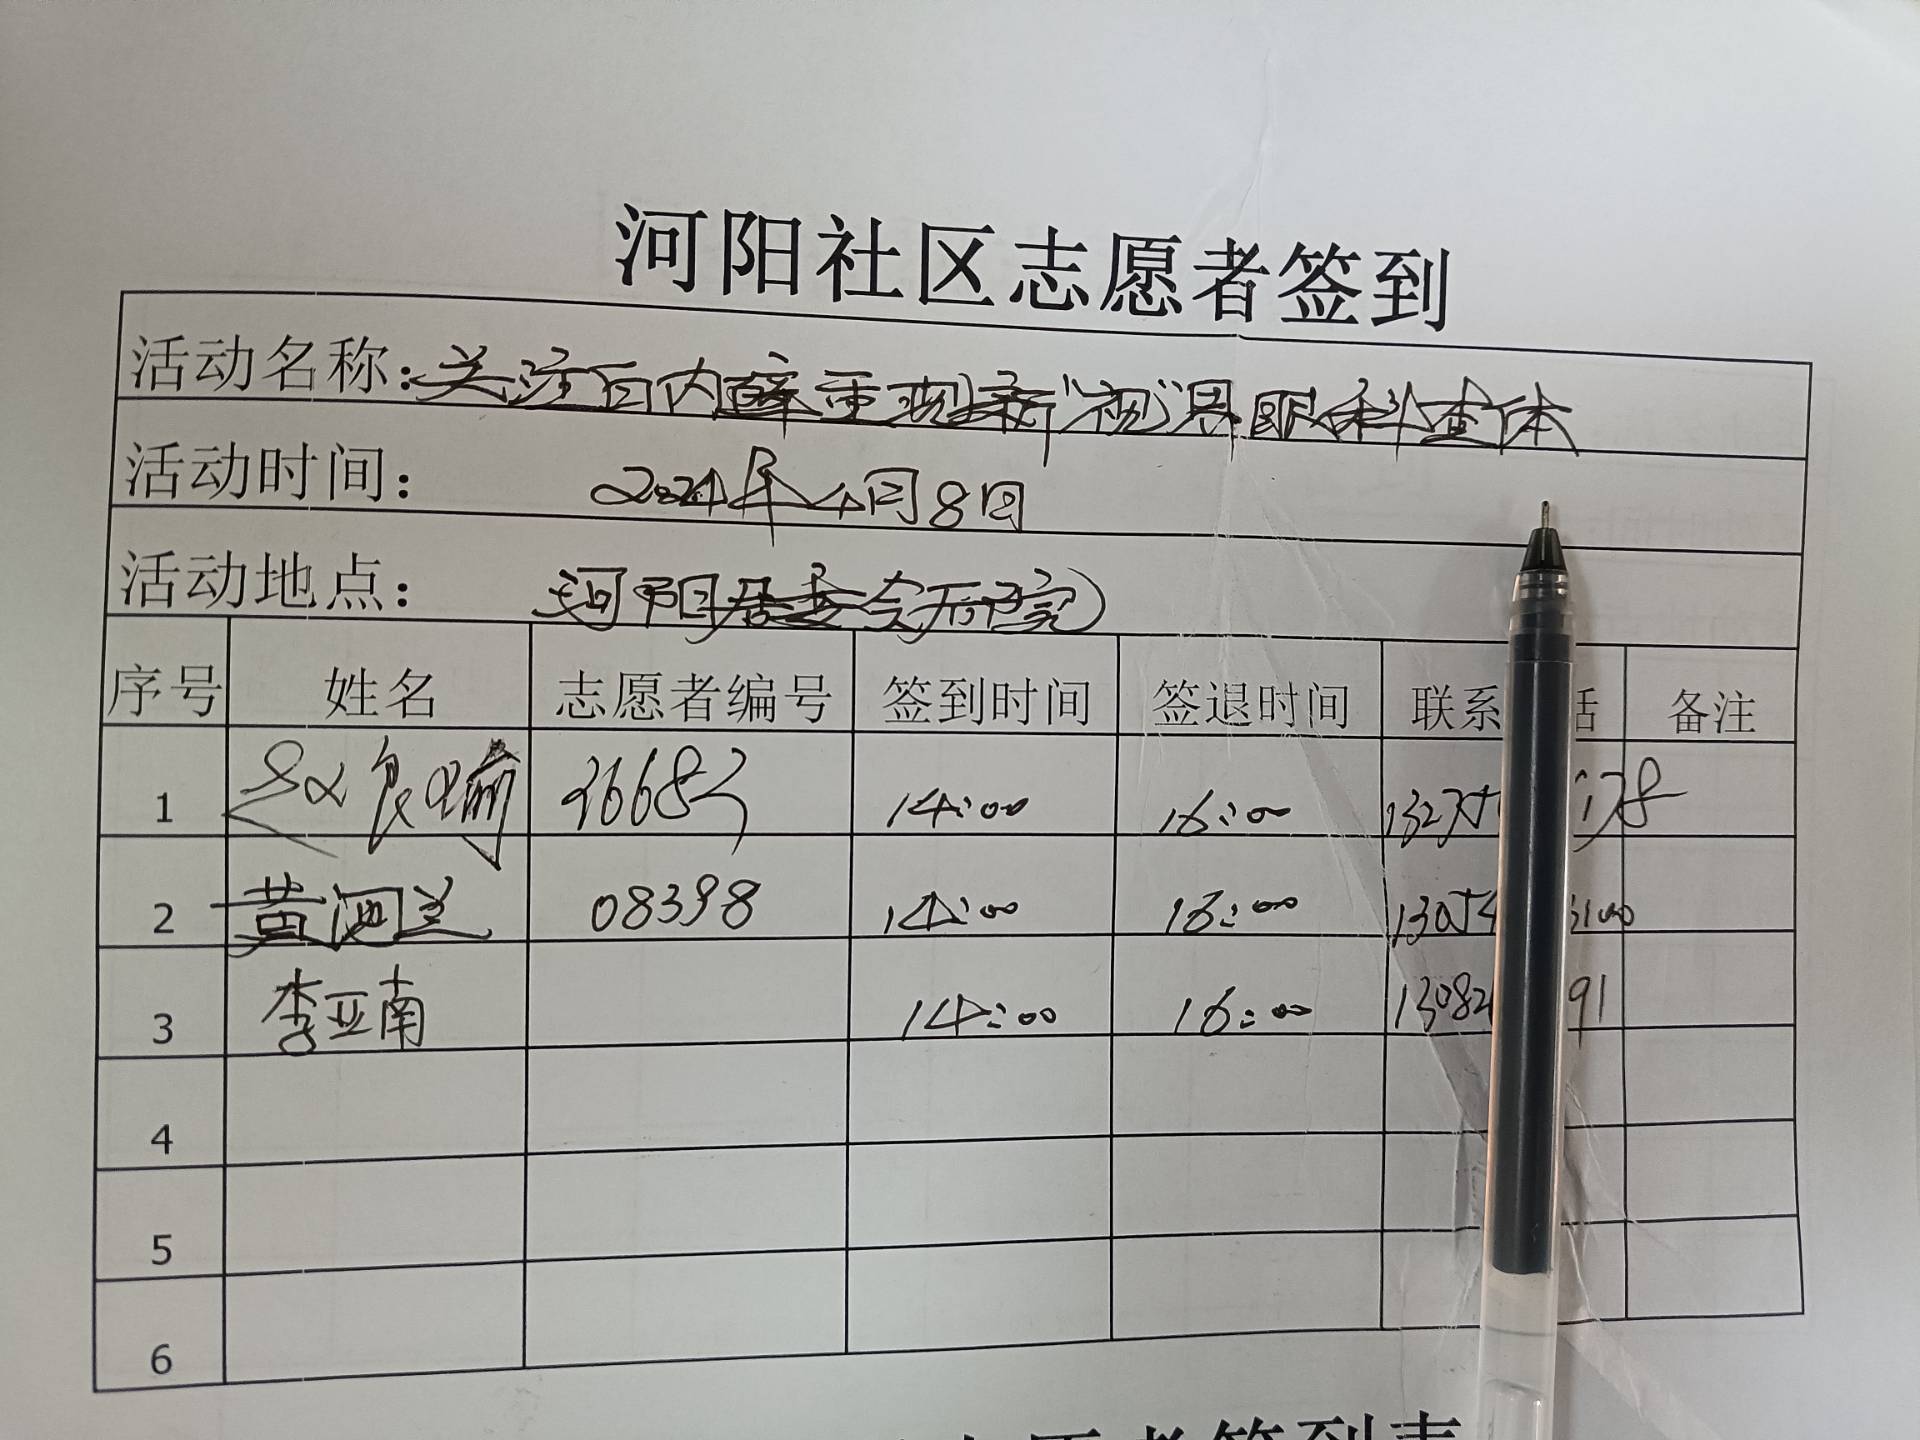 河阳社区志愿者签到
活动名称：关注白内障重现新“视”界眼科查体
活动时间： 2024年4月8日
活动地点： 河阳居委会
序号 姓名 志愿者编号 签到时间 签退时间 联系 话 备注
1 14:00 16:00
2 黄泗兰 08398 14:00 16:00
3 李亚南 14:00 16:00 91
4
5
6
志愿者签到表